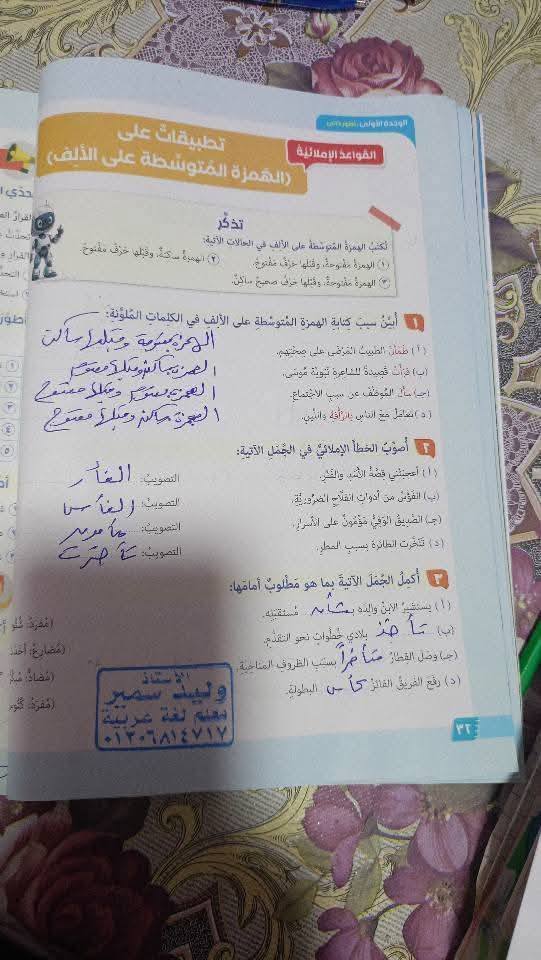 الوحدة الأولى
القواعد الإملائية
تطبيقات على
(الهمزة المتوسطة على الألف)
تذكر
تكتب الهمزة المتوسطة على الألف في الحالات الآتية:
(١) الهمزة مفتوحة، وقبلها حرف مفتوح.
(٢) الهمزة ساكنة، وقبلها حرف مفتوح.
(٣) الهمزة مفتوحة، وقبلها حرف صحيح ساكن.
١ أبين سبب كتابة الهمزة المتوسطة على الألف في الكلمات الملونة:
(أ) طمأن الطبيب المرضى على صحتهم. الهمزة مفتوحة وقبلها ساكن
(ب) قرأت قصيدة للشاعرة نبوية موسى. الهمزة ساكنة وقبلها مفتوح
(جـ) سأل الموظف عن سبب الاجتماع. الهمزة مفتوح وقبلها مفتوح
(د) تعامل مع الناس بالرأفة واللين. الهمزة ساكنة وقبلها مفتوح
٢ أصوب الخطأ الإملائي في الجمل الآتية:
(أ) أعجبتني قصة الأسد والفئر. التصويب: الفأر
(ب) الفؤس من أدوات الفلاح الضرورية. التصويب: الفأس
(جـ) الصديق الوفي مؤمون على الأسرار. التصويب: مأمون
(د) تئخرت الطائرة بسبب المطر. التصويب: تأخرت
٣ أكمل الجمل الآتية بما هو مطلوب أمامها:
(أ) يستشير الابن والده بشأن مستقبله.
(ب) تأخذ بلادي خطوات نحو التقدم.
(جـ) وصل القطار متأخراً بسبب الظروف المناخية.
(د) رفع الفريق الفائز كأس البطولة.
الأستاذ
وليد سمير
معلم لغة عربية
٠١٢٠٦٨١٤٧١٧
٣٢